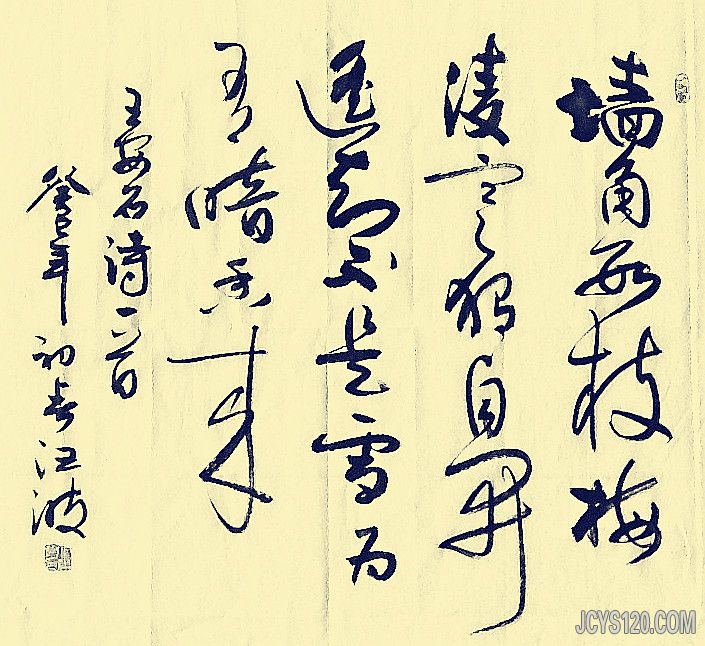 墙角数枝梅
凌寒独自開
遥知不是雪为
有暗香来
王安石诗一首
癸巳年初春汪波
JCYS120.COM